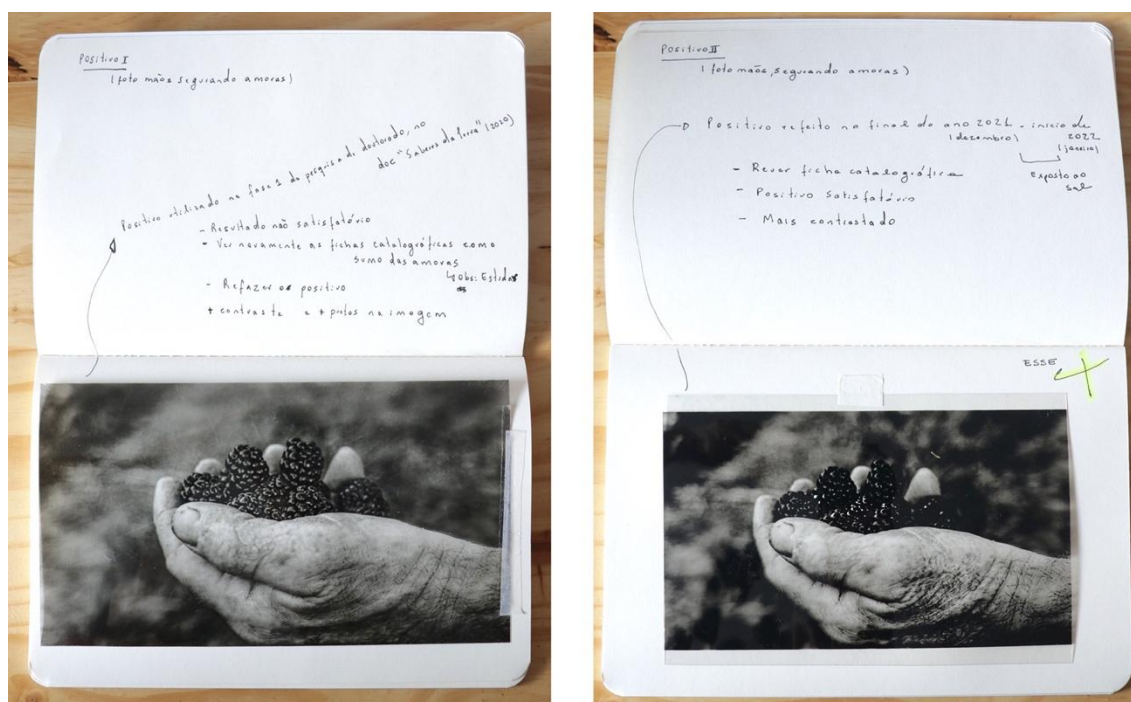 Positivo I
(foto mãos segurando amoras)
Positivo utilizado na fase 1 da pesquisa de doutorado, no
doc "Saberes da Terra" (2020)
- Resultado não satisfatório
- Ver novamente as fichas catalográficas com o
sumo das amoras
↳ obs: Estidos
- Refazer o positivo
+ contraste e + pretos na imagem
Positivo II
(foto mãos, segurando amoras)
Positivo refeito no final do ano 2021 - início de
2022
(dezembro)
(janeiro)
exposto ao
sol
- Rever ficha catalográfica
- Positivo satisfatório
- Mais contrastado
ESSE